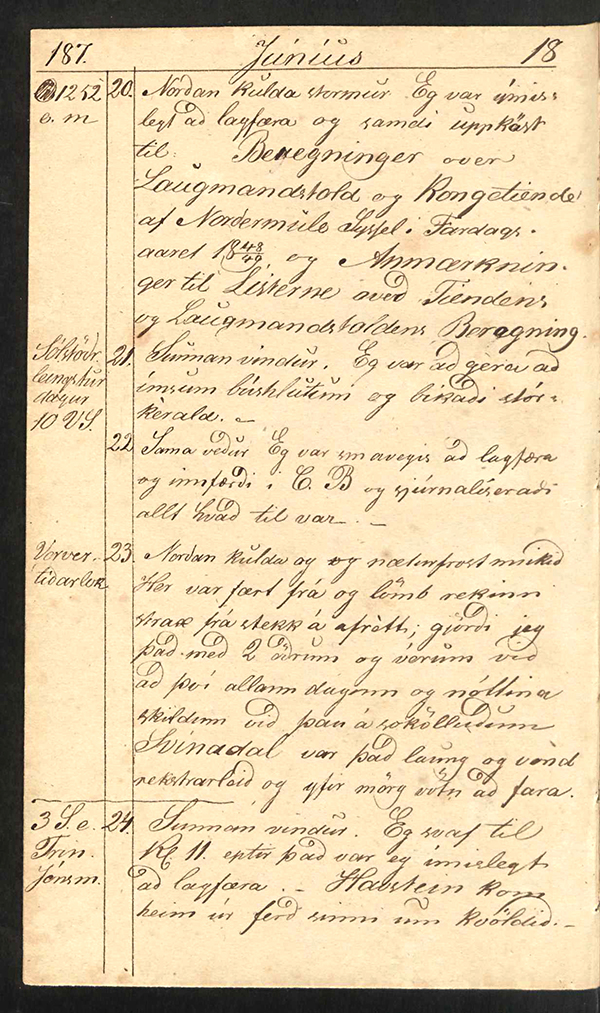 187. Júníus 18
1252 20. Nordan kulda stormur Eg var ýmis=
e. m legt ad lagfæra og samdi uppkast
til: Beregninger over
Laugmandstold og Kongetiende
af Nordermule Syssel i Fardags.
aaret 1848/49, og Anmærknin-
ger til Listerne med Tiendens
og Laugmandstoldens Beregning.
Sólstödr. 21. Sunnan vindur. Eg var ad gera ad
leingstur ímsum búshlutum og bikadi stór=
dagur kèrald. –
10 VS.
22 Sama vedur Eg var smavegis ad lagfæra
og innfærdi i C. B og sjúrnalíseradi
allt hvad til var. –
Vorver- 23. Nordan kulda og og næturfrost mikid
tidarlok Her var fært frá og lömb rekinn
strax frá stekk á afrètt; gjördi jeg
þad med 2 ödrum og vorum vid
ad því allann daginn og nóttina
skildum vid þau á sokölludum
Svínadal var þad laung og vond
rekstrarleid og yfir mörg vötn ad fara.
3 S. e. 24. Sunnan vindur. Eg svaf til
Trin. Kl 11. eptir þad var eg ímislegt
Jónsm. ad lagfæra. – Havstein kom
heim úr ferd sinni um kvöldid. –